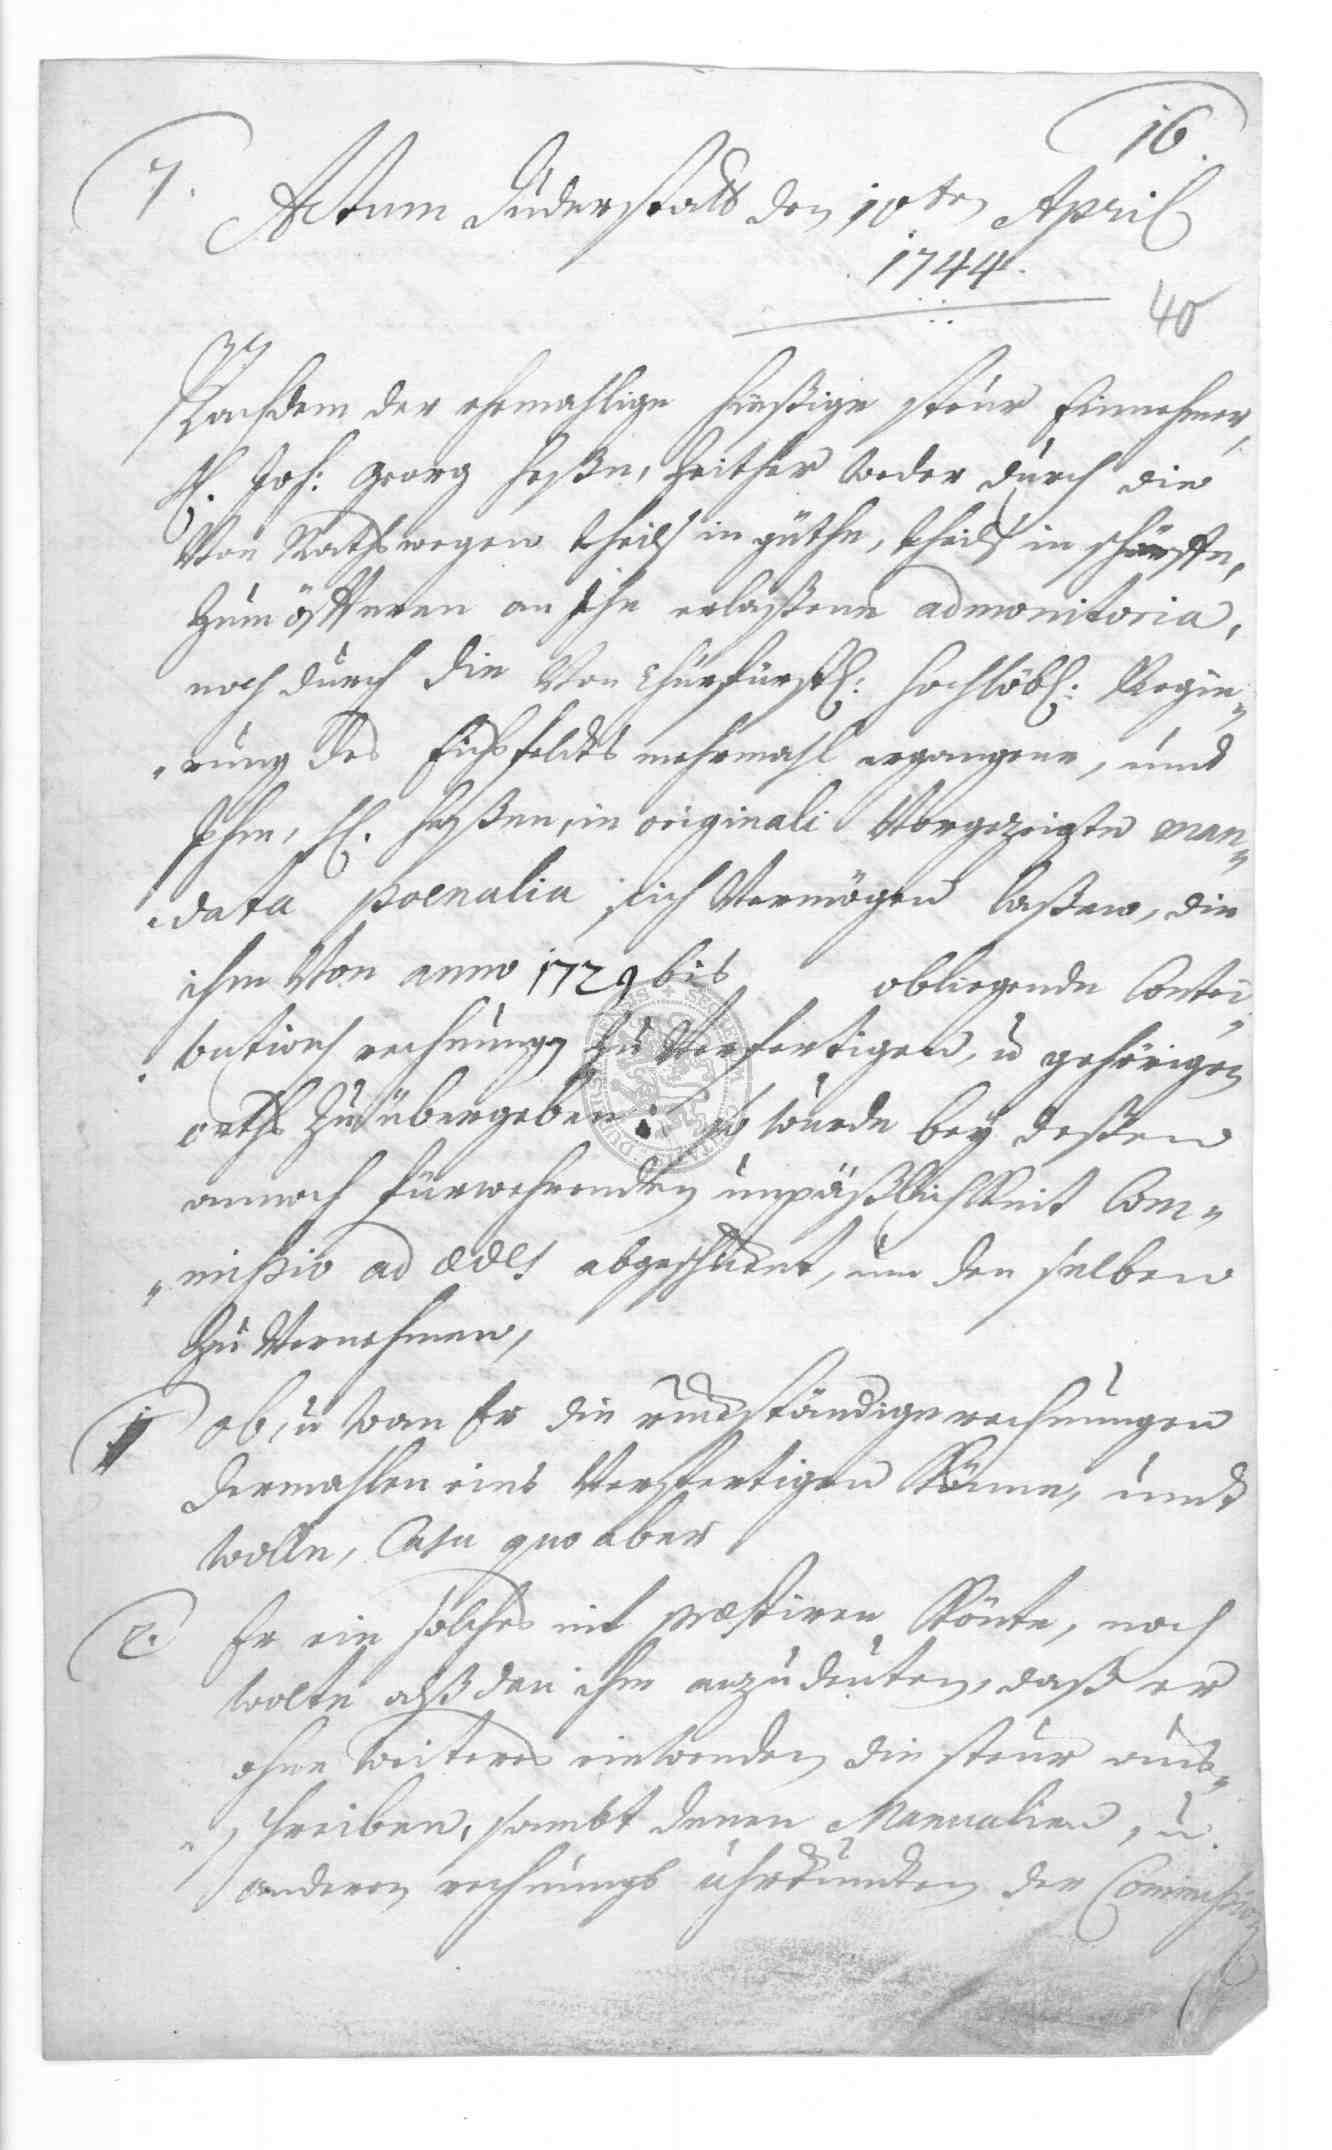 16.
7.
Actum Duderstadt den 10ten April
1744.
40
Nachdem der ehemahlige hießige steür Einnehmer,
H. Joh: Georg Heße, zeither weder durch die
Von Raths wegen theils in güthe, theils in schärffe,
Zum öffteren an Ihn erlaßene admonitoria,
noch durch die Von Churfürstl: Hochlöbl: Regie„
„rung des Eichsfeldts mehrmahl ergangene, undt
Ihm, H. Heßen, in originali Vorgezeigte man„
„data poenalia sich Vermögen laßen, die
ihm Von anno 1729 bis obliegende Contri„
„butions rechnungen zu Verfertigen, u gehörigen
orths Zu übergeben: so wurde bey deßen
annoch fürwehrenden unpäßlichkeit Com„
„mißio ad ædes abgeschickt, um den selben
Zu Vernehmen,
1 ob, u wan Er die rückständige rechnungen
dermahlen eins Verfertigen könne, undt
wolle, Casu quo aber
2. Er ein solches nit præstiren könte, noch
wolte alßdan ihm anzudeuten, daß er
ohne weiteres einwenden die steur aus„
„schreiben, sambt denen Manualien, u.
anderen rechnungs uhrkunden der Commißion